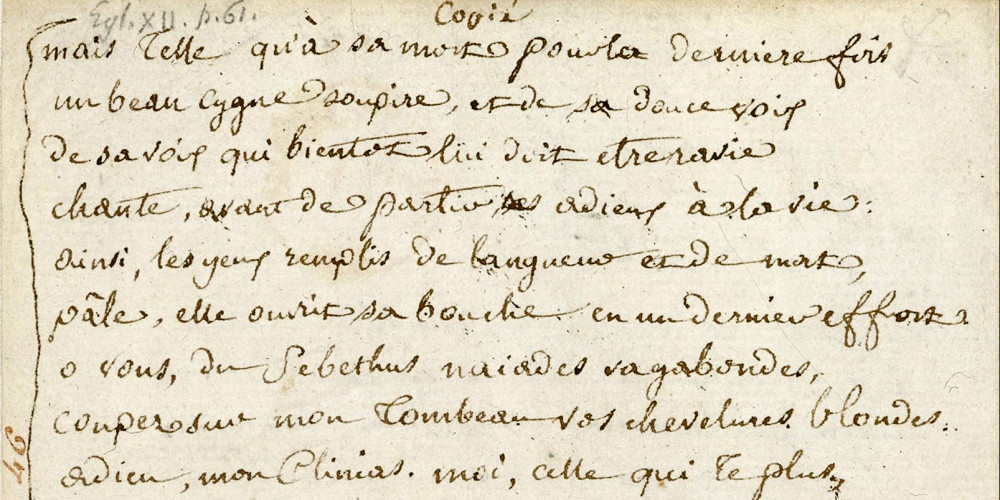 Egl. XII. p. 61.
Copié
mais Telle qu'à sa mort pour la derniere fois
un beau cygne soupire, et de sa douce voix
de sa voix qui bientot lui doit etre ravie
chante, avant de partir ses adieux à la vie:
ainsi, les yeux remplis de langueur et de mort,
pâle, elle ouvrit sa bouche en un dernier effort.
o vous, du Sebethus naiades vagabondes,
coupez sur mon Tombeau vos chevelures blondes.
adieu, mon Clinias. moi, celle qui te plus,
46